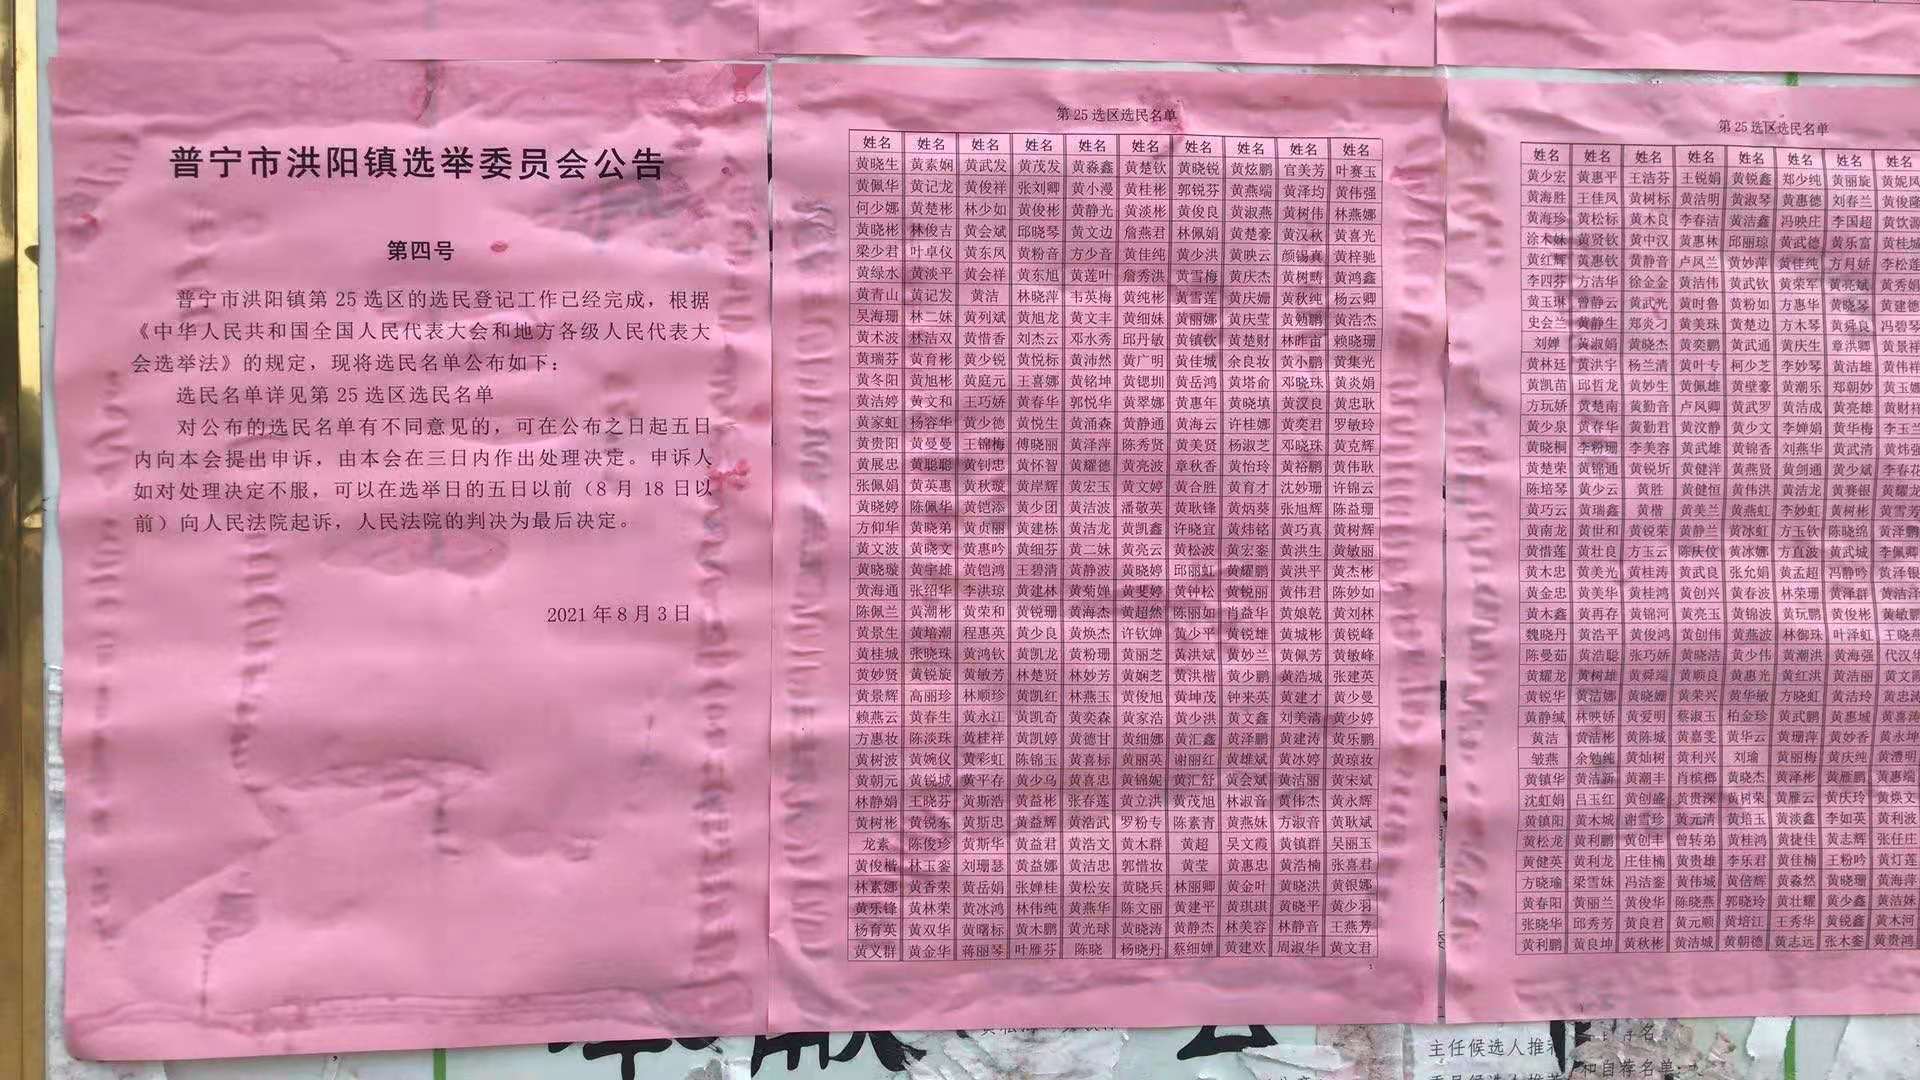 普宁市洪阳镇选举委员会公告
第四号
普宁市洪阳镇第 25 选区的选民登记工作已经完成，根据
《中华人民共和国全国人民代表大会和地方各级人民代表大
会选举法》的规定，现将选民名单公布如下：
选民名单详见第 25 选区选民名单
对公布的选民名单有不同意见的，可在公布之日起五日
内向本会提出申诉，由本会在三日内作出处理决定。申诉人
如对处理决定不服，可以在选举日的五日以前（8 月 18 日以
前）向人民法院起诉，人民法院的判决为最后决定。
2021 年 8 月 3 日
第 25 选区选民名单
姓名 姓名 姓名 姓名 姓名 姓名 姓名 姓名 姓名 姓名
黄晓生 黄素娴 黄武发 黄茂发 黄淼鑫 黄楚钦 黄晓锐 黄炫鹏 官美芳 叶赛玉
黄佩华 黄记龙 黄俊祥 张刘卿 黄小漫 黄桂彬 郭锐芬 黄燕端 黄泽均 黄伟强
何少娜 黄楚彬 林少如 黄俊彬 黄静光 黄淡彬 黄俊良 黄淑燕 黄树伟 林燕娜
黄晓彬 林俊吉 黄会斌 邱晓琴 黄文边 詹燕君 林佩娟 黄楚豪 黄汉秋 黄喜光
梁少君 叶卓仪 黄东凤 黄粉音 方少音 黄佳纯 黄少洪 黄映云 颜锡真 黄梓驰
黄绿水 黄淡平 黄会祥 黄东旭 黄莲叶 詹秀洪 黄雪梅 黄庆杰 黄树畴 黄鸿鑫
黄青山 黄记发 黄洁 林晓萍 韦英梅 黄纯彬 黄雪莲 黄庆姗 黄秋纯 杨云卿
吴海珊 林二妹 黄列斌 黄旭龙 黄文丰 黄细妹 黄丽娜 黄庆莹 黄勉鹏 黄浩杰
黄术波 林洁双 黄惜香 刘杰云 邓水秀 邱丹敏 黄镇钦 黄楚财 林昨宙 赖晓珊
黄瑞芬 黄育彬 黄少锐 黄悦标 黄沛然 黄广明 黄佳城 余良妆 黄小鹏 黄集光
黄冬阳 黄旭彬 黄庭元 王喜娜 黄铭坤 黄锶圳 黄岳鸿 黄塔俞 邓晓珠 黄炎娟
黄洁婷 黄文和 王巧娇 黄春华 郭悦华 黄翠娜 黄惠年 黄晓填 黄汉良 黄忠耿
黄家虹 杨容华 黄少德 黄悦生 黄涌森 黄静通 黄海云 许桂娜 黄奕君 罗敏玲
黄贵阳 黄曼曼 王锦梅 傅晓丽 黄泽萍 陈秀贤 黄美贤 杨淑芝 邓晓珠 黄克辉
黄展忠 黄聪聪 黄钊忠 黄怀智 黄耀德 黄亮波 章秋香 黄怡玲 黄裕鹏 黄伟耿
张佩娟 黄英惠 黄秋璇 黄岸辉 黄宏玉 黄文婷 黄合胜 黄育才 沈妙珊 许锦云
黄晓婷 陈佩华 黄铠添 黄少团 黄洁波 潘敬英 黄耿锋 黄炳葵 张旭辉 陈益珊
方仰华 黄晓弟 黄贞丽 黄建栋 黄洁龙 黄凯鑫 许晓宜 黄炜铭 黄巧真 黄树辉
黄文波 黄晓文 黄惠吟 黄细芬 黄二妹 黄亮云 黄松波 黄宏銮 黄洪生 黄敏丽
黄晓璇 黄宇雄 黄铠鸿 王碧清 黄静波 黄晓婷 邱丽虹 黄耀鹏 黄洪平 黄杰彬
黄海通 张绍华 李洪琼 黄建林 黄菊婵 黄斐婷 黄钟松 黄锐丽 黄伟君 陈妙如
陈佩兰 黄潮彬 黄荣和 黄锐珊 黄海杰 黄超然 陈丽如 肖益华 黄娘乾 黄刘林
黄景生 黄培潮 程惠英 黄少良 黄焕杰 许钦婵 黄少平 黄锐雄 黄城彬 黄锐峰
黄桂城 张晓珠 黄鸿钦 黄凯龙 黄粉珊 黄丽芝 黄洪斌 黄妙兰 黄佩芳 黄敏峰
黄妙贤 黄锐旋 黄敏芳 林楚贤 林妙芳 黄娴芝 黄洪楷 黄少鹏 黄浩城 张建英
黄景辉 高丽珍 林顺珍 黄凯红 林燕玉 黄俊旭 黄坤茂 钟来英 黄建才 黄少曼
赖燕云 黄春生 黄永江 黄凯奇 黄奕森 黄家浩 黄少洪 黄文鑫 刘美清 黄少婷
方惠妆 陈淡珠 黄桂祥 黄凯婷 黄德甘 黄细娜 黄汇鑫 黄泽鹏 黄建涛 黄乐鹏
黄树波 黄婉仪 黄彩虹 陈锦玉 黄喜标 黄丽英 谢丽红 黄雄斌 黄冰婷 黄琼妆
黄朝元 黄锐城 黄平存 黄少乌 黄喜忠 黄锦妮 黄汇舒 黄会斌 黄洁丽 黄宋斌
林静娟 王晓芬 黄斯浩 黄益彬 张春莲 黄立洪 黄茂旭 林淑音 黄伟杰 黄永辉
黄树彬 黄锐东 黄斯忠 黄益辉 黄浩武 罗粉专 陈素青 黄燕妹 方淑音 黄耿斌
龙素 陈俊珍 黄斯华 黄益君 黄浩文 黄木群 黄超 吴文霞 黄镇群 吴丽玉
黄俊楷 林玉銮 刘珊瑟 黄益娜 黄洁忠 郭惜妆 黄莹 黄惠忠 黄浩楠 张喜君
林素娜 黄香荣 黄岳娟 张婵桂 黄松安 黄晓兵 林丽卿 黄金叶 黄晓洪 黄银娜
黄乐锋 黄林荣 黄冰鸿 林伟纯 黄燕华 陈文丽 黄建平 黄琪琪 黄晓平 黄少羽
杨育英 黄双华 黄曙标 黄木鹏 黄光球 黄晓涛 黄静杰 林美容 林静音 王燕芳
黄义群 黄金华 蒋丽琴 叶雁芬 陈晓 杨晓丹 蔡细婵 黄建欢 周淑华 黄文君
1
第 25 选区选民名单
姓名 姓名 姓名 姓名 姓名 姓名 姓名 姓名
黄少宏 黄惠平 王洁芬 王锐娟 黄锐鑫 郑少纯 黄丽旋 黄妮凤
黄海胜 王佳凤 黄树标 黄洁明 黄淑琴 黄惠德 刘春兰 黄俊隆
黄海珍 黄松标 黄木良 李春洁 黄洁鑫 冯映庄 李国超 黄饮源
涂木妹 黄贤钦 黄中汉 黄惠林 邱丽琼 黄武德 黄乐富 黄桂城
黄红辉 黄惠钦 黄静音 卢凤兰 黄妙萍 黄佳纯 方月娇 李松莲
李四芬 方洁华 徐金金 黄洁伟 黄武钦 黄荣军 黄亮斌 黄秀娟
黄玉琳 曾静云 黄武光 黄时鲁 黄粉如 方惠华 黄晓琴 黄建德
史会兰 黄静生 郑炎刁 黄美珠 黄楚边 方木琴 黄舜良 冯碧琴
刘婵 黄淑娟 黄晓杰 黄奕鹏 黄武通 黄庆生 章洪卿 黄景祥
黄林廷 黄洪宇 杨兰清 黄叶专 柯少芝 李妙琴 黄洁雄 黄伟祥
黄凯苗 邱哲龙 黄妙生 黄佩雄 黄壁豪 黄潮乐 郑朝妙 黄玉娜
方玩娇 黄楚南 黄勤音 卢凤卿 黄武罗 黄洁成 黄亮雄 黄财祥
黄少泉 黄春华 黄勤君 黄汶静 黄少文 李婵娟 黄华梅 李玉兰
黄晓桐 李粉珊 李美容 黄武雄 黄锦香 刘燕华 黄武清 黄炜强
黄楚荣 黄锦通 黄锐圻 黄健洋 黄燕贤 黄剑通 黄少斌 李春花
陈培琴 黄少云 黄胜 黄健恒 黄伟洪 黄洁龙 黄赛银 黄耀龙
黄巧云 黄瑞鑫 黄楷 黄美兰 黄燕虹 李妙虹 黄树彬 黄雪芳
黄南龙 黄世和 黄锐荣 黄静兰 黄冰虹 方玉钦 陈晓绵 黄泽鹏
黄惜莲 黄壮良 方玉云 陈庆仪 黄冰娜 方直波 黄武城 李佩卿
黄木忠 黄美光 黄桂涛 黄武良 张允娟 黄孟超 冯静吟 黄泽银
黄金忠 黄美华 黄桂鸿 黄创兴 黄春波 林荣珊 黄泽群 黄洁洋
黄木鑫 黄再存 黄锦河 黄亮玉 黄锦波 黄玩鹏 黄俊彬 黄敏鹏
魏晓丹 黄浩平 黄俊鸿 黄创伟 黄燕波 林御珠 叶泽虹 王晓燕
陈曼茹 黄浩聪 张巧娇 黄晓洁 黄少伟 黄潮洪 黄海强 代汉华
黄耀龙 黄树雄 黄舜端 黄顺良 黄惠光 黄红洪 黄洁丽 黄文霞
黄锐华 黄洁娜 黄晓姗 黄荣兴 黄华敏 方晓虹 黄洁玲 黄忠涛
黄静缄 林映娇 黄爱明 蔡淑玉 柏金珍 黄武鹏 黄惠城 黄喜涛
黄洁 黄洁彬 黄陈城 黄嘉雯 黄华云 黄珊萍 黄妙香 黄永坤
皱燕 余勉纯 黄灿树 黄利兴 刘瑜 黄丽梅 黄庆纯 黄澧明
黄镇华 黄洁新 黄潮丰 肖槟榔 黄晓杰 黄泽彬 黄雁鹏 黄惠端
沈虹娟 吕玉红 黄创盛 黄贵深 黄树荣 黄雁云 黄庆玲 黄焕文
黄镇阳 黄木城 谢雪珍 黄元清 黄培玉 黄淡鑫 李如英 黄利波
黄松龙 黄利鹏 黄创丰 曾转弟 黄桂鸿 黄捷佳 黄志辉 张任庄
黄健英 黄利龙 庄佳楠 黄贵雄 李乐君 黄佳楠 王粉吟 黄灯莲
方晓瑜 梁雪妹 冯洁銮 黄伟城 黄倍辉 黄淼然 黄晓珊 黄海萍
黄春阳 黄丽兰 黄俊华 陈晓燕 郭晓玲 黄壮耀 黄少鑫 黄洁妹
张晓华 邱秀芳 黄良君 黄元顺 黄培江 王秀华 黄锐鑫 黄木河
黄利鹏 黄良坤 黄秋彬 黄洁城 黄朝德 黄志远 张木銮 黄贵鸿
主任候选人推荐
和自荐名单：